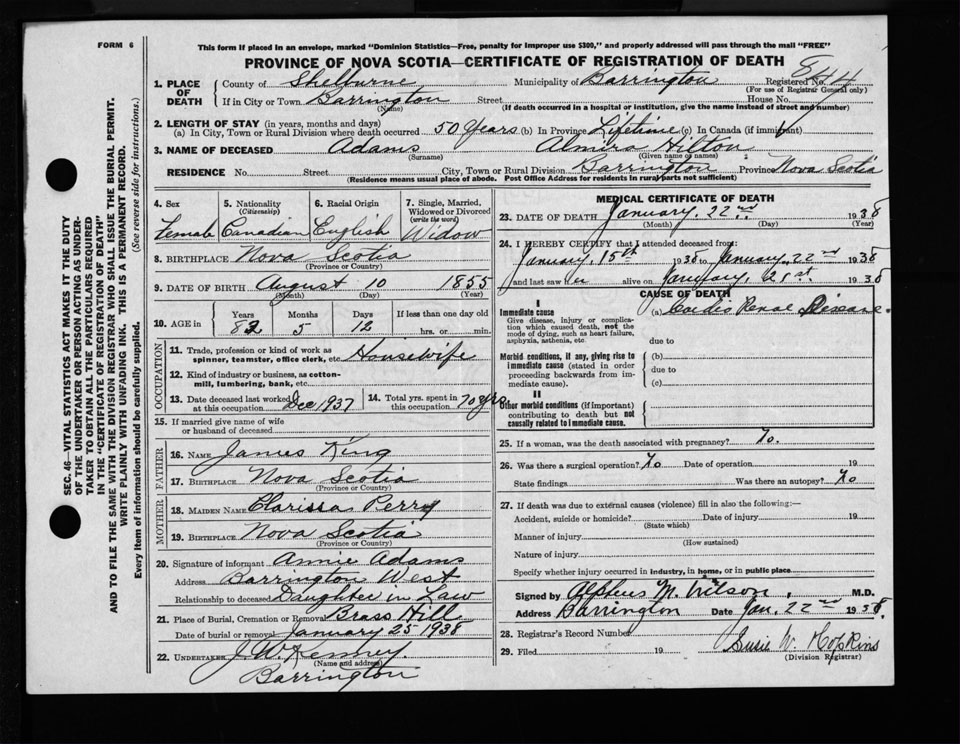 FORM 6
This form if placed in an envelope, marked "Dominion Statistics—Free, penalty for improper use $300," and properly addressed will pass through the mail "FREE"
PROVINCE OF NOVA SCOTIA—CERTIFICATE OF REGISTRATION OF DEATH
1. PLACE OF DEATH County of Shelburne Municipality of Barrington Registered No.
(For use of Registrar General only)
If in City or Town Barrington Street House No.
(Name) (If death occurred in a hospital or institution, give the name instead of street and number)
2. LENGTH OF STAY (in years, months and days)
(a) In City, Town or Rural Division where death occurred 50 Years (b) In Province Lifetime (c) In Canada (if immigrant)
3. NAME OF DECEASED Adams Almira Hilton
(Surname) (Given name or names)
RESIDENCE No. Street City, Town or Rural Division Barrington Province Nova Scotia
(Residence means usual place of abode. Post Office Address for residents in rural parts not sufficient)
4. Sex Female
5. Nationality (Citizenship) Canadian
6. Racial Origin English
7. Single, Married, Widowed or Divorced (write the word) Widow
8. BIRTHPLACE Nova Scotia
(Province or Country)
9. DATE OF BIRTH August 10 1855
(Month) (Day) (Year)
10. AGE in Years Months Days If less than one day old
82 5 12 hrs. or min.
OCCUPATION
11. Trade, profession or kind of work as spinner, teamster, office clerk, etc Housewife
12. Kind of industry or business, as cotton-mill, lumbering, bank, etc.
13. Date deceased last worked at this occupation Dec 1937
14. Total yrs. spent in this occupation 70 yrs
15. If married give name of wife or husband of deceased
FATHER
16. NAME James King
17. BIRTHPLACE Nova Scotia
(Province or Country)
MOTHER
18. MAIDEN NAME Clarissa Perry
19. BIRTHPLACE Nova Scotia
(Province or Country)
20. Signature of informant Annie Adams
Address Barrington West
Relationship to deceased Daughter in Law
21. Place of Burial, Cremation or Removal Brass Hill
Date of burial or removal January 25 1938
22. UNDERTAKER J. W. Kenney
(Name and address)
Barrington
MEDICAL CERTIFICATE OF DEATH
23. DATE OF DEATH January 22nd 1938
(Month) (Day) (Year)
24. I HEREBY CERTIFY that I attended deceased from:
January 15th 1938 to January 22nd 1938
and last saw alive on January 21st 1938
CAUSE OF DEATH
I
Immediate cause
Give disease, injury or complication which caused death, not the mode of dying, such as heart failure, asphyxia, asthenia, etc
(a) Cardio Renal Disease
due to
Morbid conditions, if any, giving rise to immediate cause (stated in order proceeding backwards from immediate cause).
(b)
due to
(c)
II
Other morbid conditions (if important) contributing to death but not causally related to immediate cause.
25. If a woman, was the death associated with pregnancy? No.
26. Was there a surgical operation? No Date of operation 19
State findings Was there an autopsy? No
27. If death was due to external causes (violence) fill in also the following:—
Accident, suicide or homicide? Date of injury 19
(State which)
Manner of injury
(How sustained)
Nature of injury
Specify whether injury occurred in industry, in home, or in public place
Signed by Alpheus M. Wilson, M.D.
Address Barrington Date Jan. 22nd 1938
28. Registrar's Record Number
29. Filed 19 Susie W. Hopkins
(Division Registrar)
SEC. 46—VITAL STATISTICS ACT MAKES IT THE DUTY
OF THE UNDERTAKER OR PERSON ACTING AS UNDER-
TAKER TO OBTAIN ALL THE PARTICULARS REQUIRED
IN THE "CERTIFICATE OF REGISTRATION OF DEATH"
AND TO FILE THE SAME WITH THE DIVISION REGISTRAR WHO SHALL ISSUE THE BURIAL PERMIT.
WRITE PLAINLY WITH UNFADING INK. THIS IS A PERMANENT RECORD.
Every item of information should be carefully supplied. (See reverse side for instructions.)